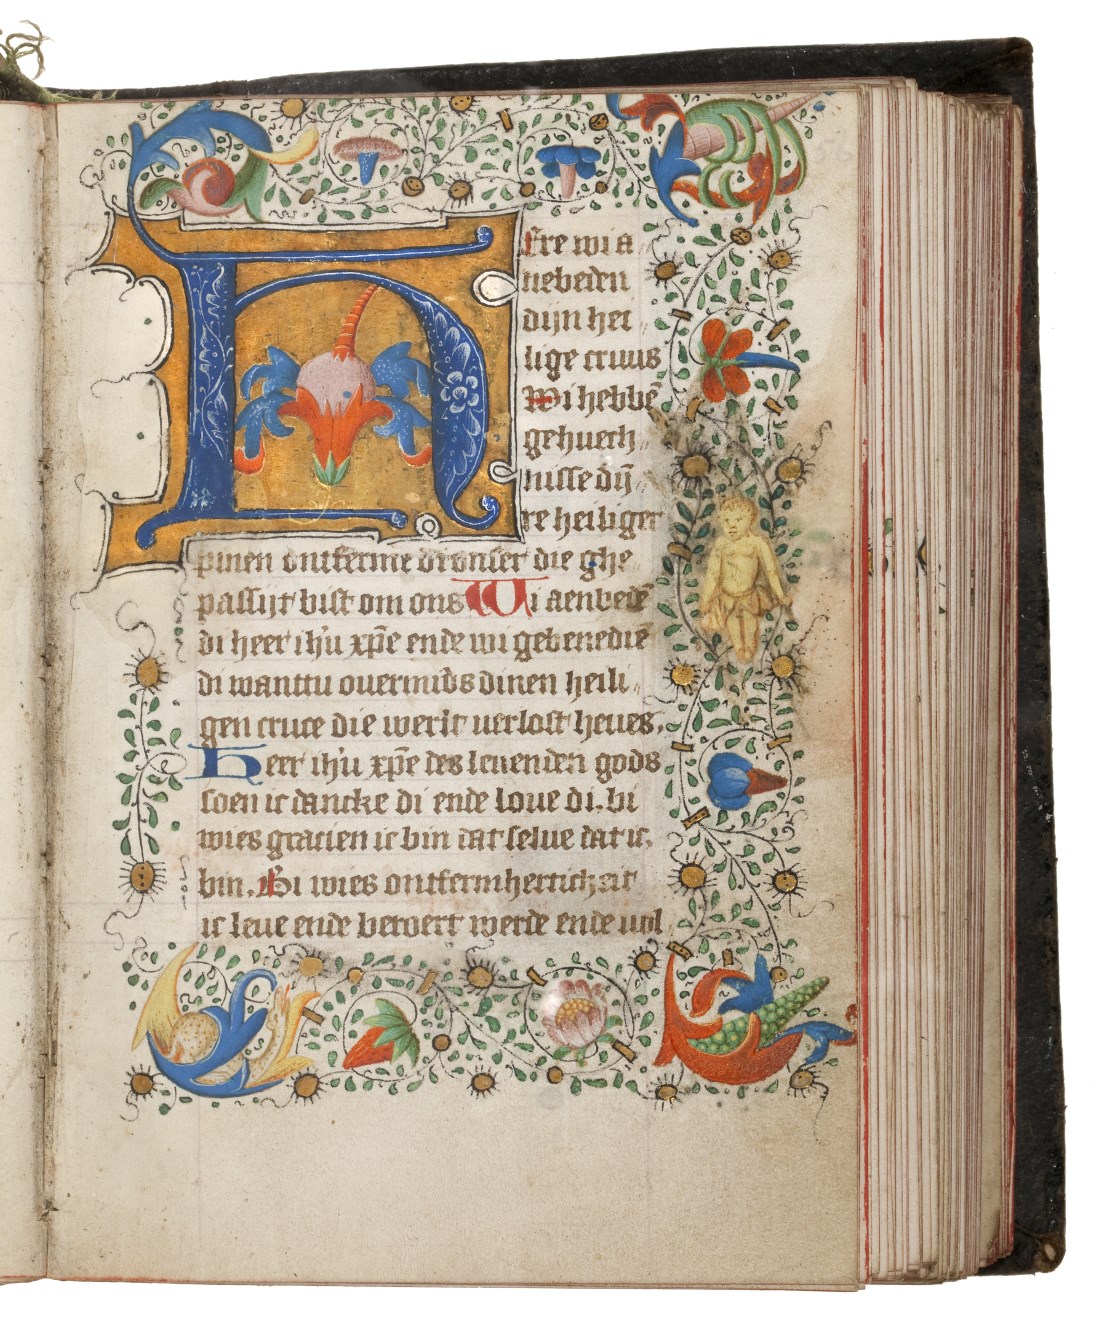 Here wi a
nebeden
dijn hei
lige cruus
Wi hebbē
gehuech
nisse dij
re heiliger
pinen ontferme di onser die ghe
passijt bist om ons Wi aenbedē
di heer ihū xpē ende wi gebenediē
di wanttu ouermids dinen heili
gen cruce die werlt verlost heues.
Heer ihū xpē des leuenden gods
soen ic dancke di ende loue di. bi
wies gracien ic bin dat selue dat ic
bin. Bi wies ontfermherticheit
ic leue ende beroert werde ende wol